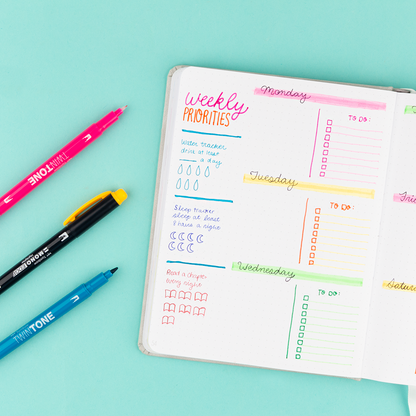 Weekly
PRIORITIES
Water tracker
drink at least
a day
Sleep tracker
sleep at least
8 hours a night
Read a chapter
every night
Monday
TO DO:
Tuesday
TO DO:
Wednesday
TO DO:
TWINTONE
MONO
TWINTONE